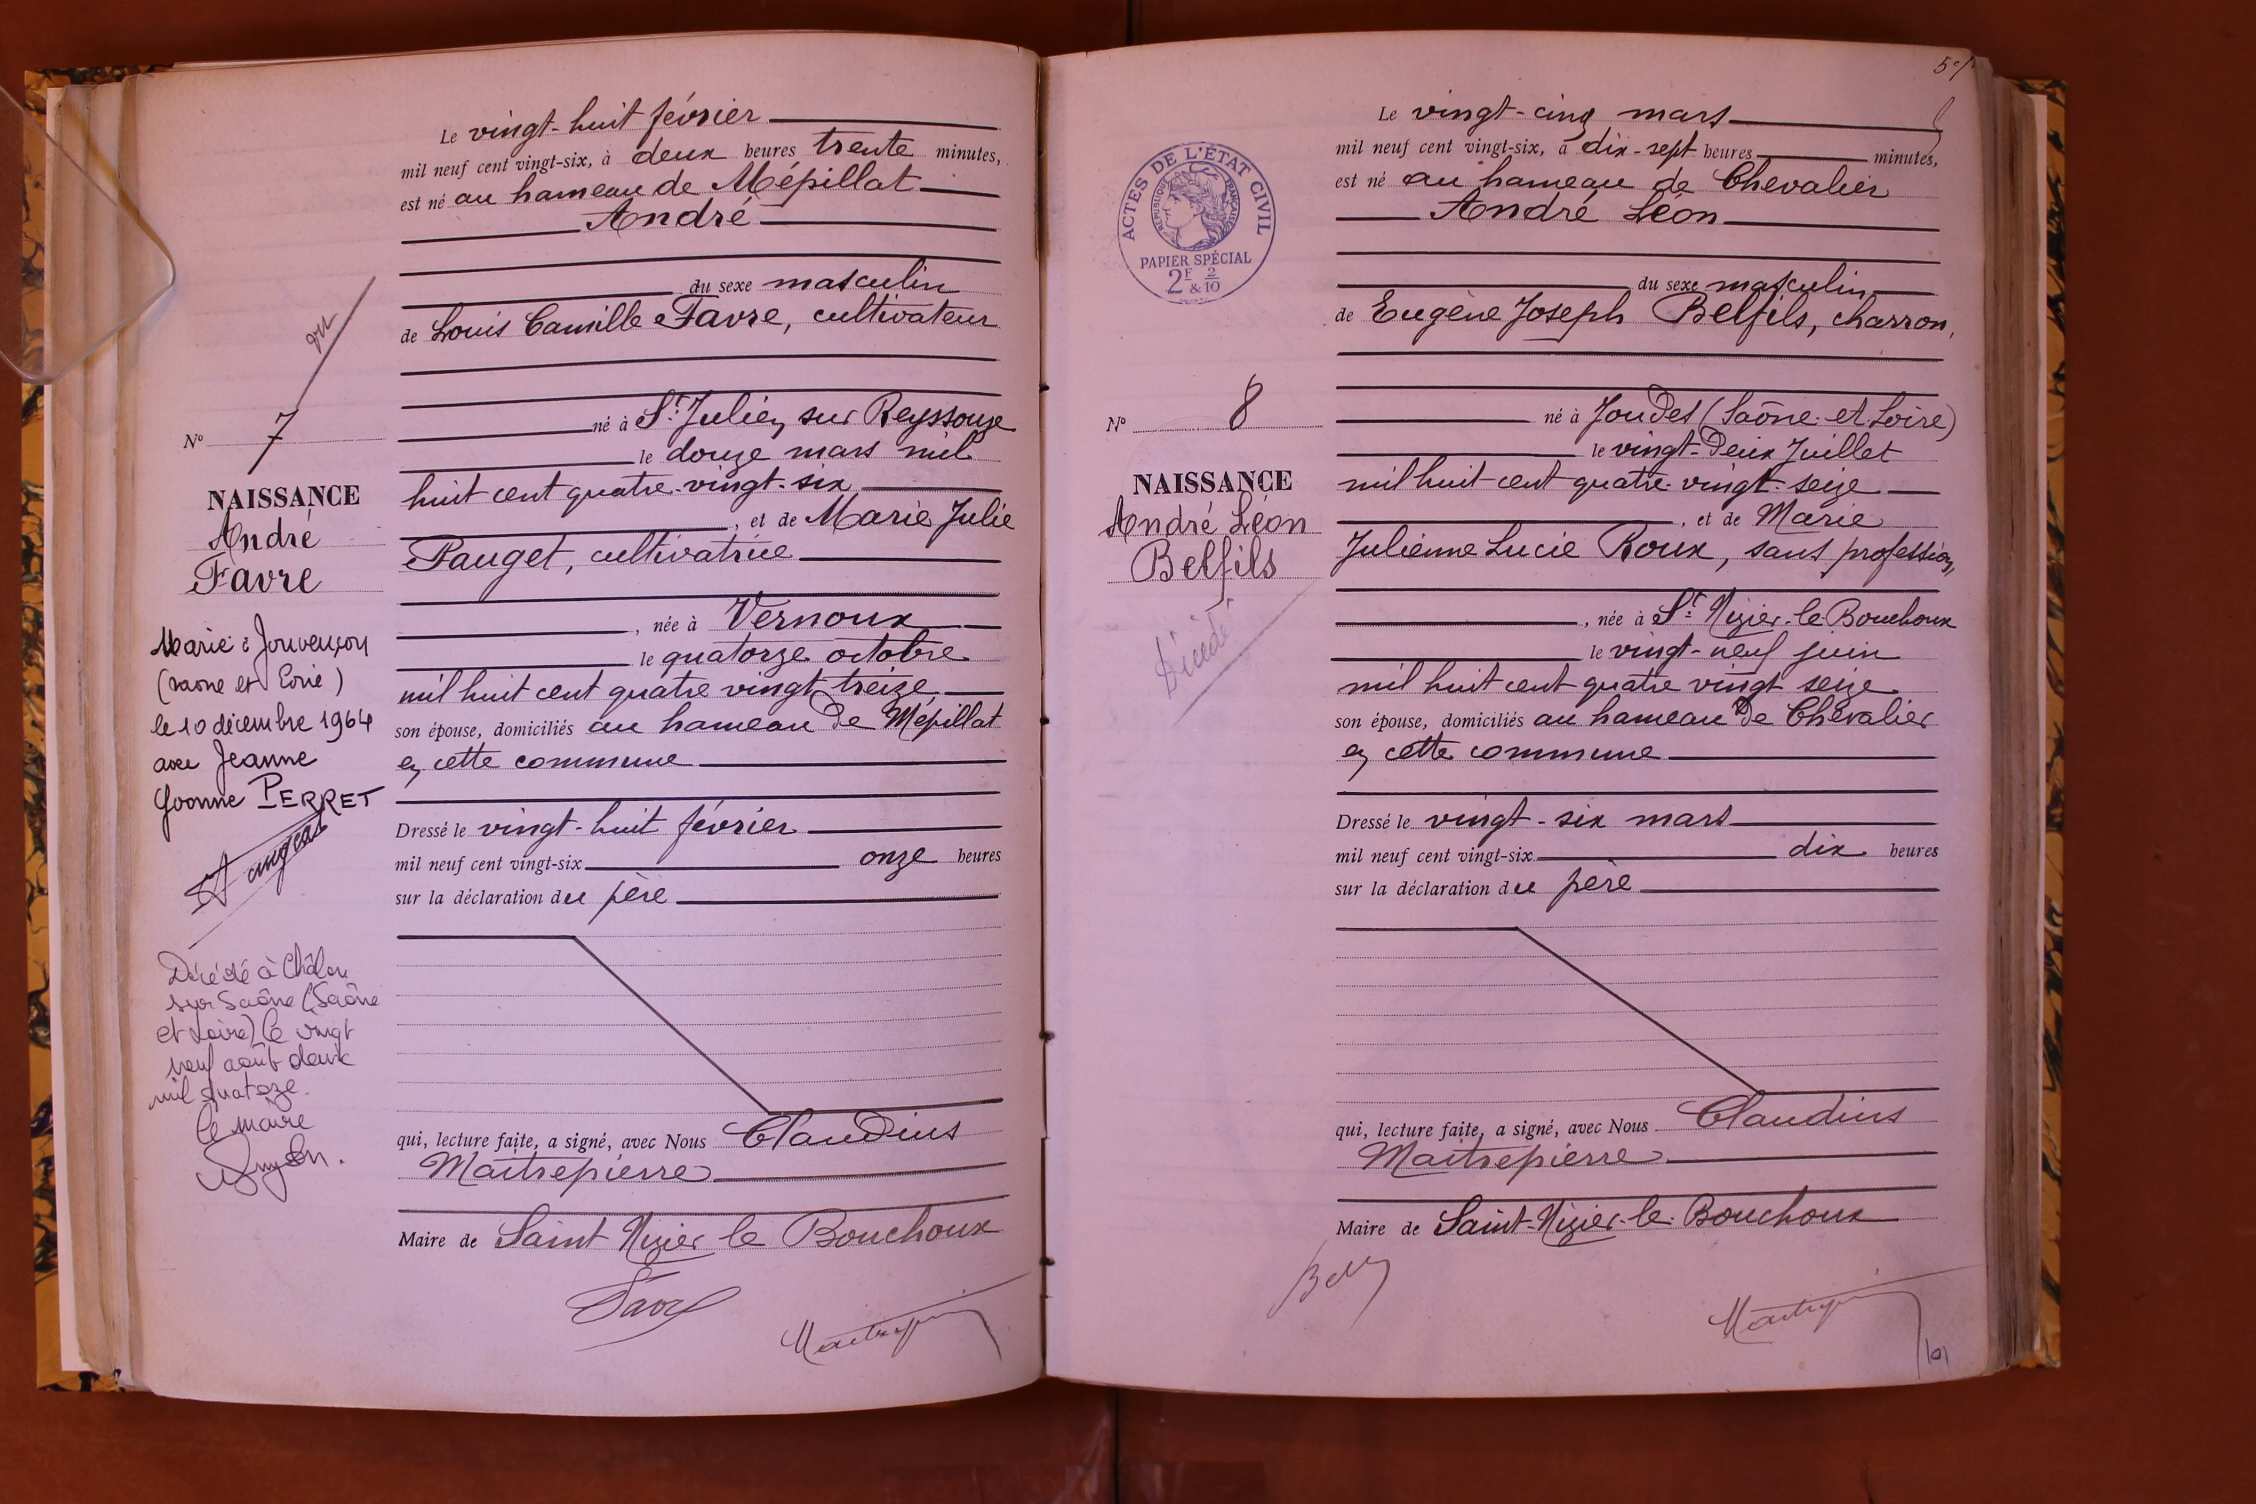 Le vingt-huit février
mil neuf cent vingt-six, à deux heures trente minutes,
est né au hameau de Mépillat
André
du sexe masculin
de Louis Camille Favre, cultivateur
né à St Julien sur Reyssouze
le douze mars mil
huit cent quatre-vingt-six
, et de Marie Julie
Pauget, cultivatrice
, née à Vernoux
le quatorze octobre
mil huit cent quatre vingt treize
son épouse, domiciliés au hameau de Mépillat
en cette commune
Dressé le vingt-huit février
mil neuf cent vingt-six onze heures
sur la déclaration du père
qui, lecture faite, a signé, avec Nous Claudius
Maitrepierre
Maire de Saint Nizier le Bouchoux
Favre
Maitrepierre
vu
No 7
NAISSANCE
André
Favre
Marié à Jouvençon
(Saone et Loire)
le 10 décembre 1964
avec Jeanne
Yvonne PERRET
Décédé à Châlon
sur Saône (Saône
et Loire) le vingt
neuf août deux
mil quatorze.
Le Maire
5e/
Le vingt-cinq mars
mil neuf cent vingt-six, à dix-sept heures minutes,
est né au hameau de Chevalier
André Léon
du sexe masculin
de Eugène Joseph Belfils, charron,
né à Joudes (Saône-et-Loire)
le vingt-deux Juillet
mil huit cent quatre-vingt-seize
, et de Marie
Julienne Lucie Roux, sans profession,
, née à St Nizier-le-Bouchoux
le vingt-neuf juin
mil huit cent quatre vingt seize
son épouse, domiciliés au hameau de Chevalier
en cette commune
Dressé le vingt-six mars
mil neuf cent vingt-six dix heures
sur la déclaration du père
qui, lecture faite, a signé, avec Nous Claudius
Maitrepierre
Maire de Saint-Nizier-le-Bouchoux
Maitrepierre
ACTES DE L'ÉTAT CIVIL
RÉPUBLIQUE FRANÇAISE
PAPIER SPÉCIAL
2F & 2/10
No 8
NAISSANCE
André Léon
Belfils
Décédé